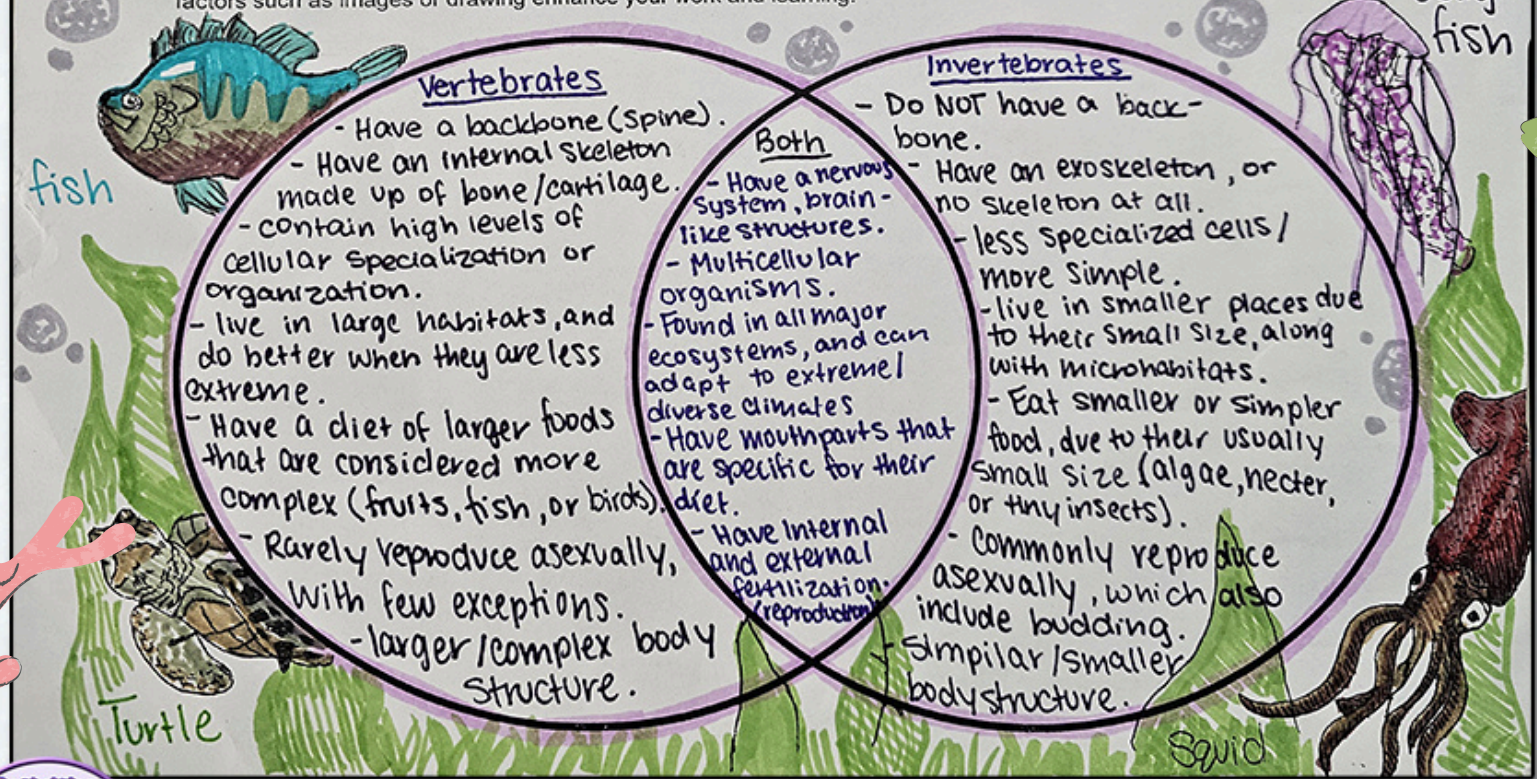 factors such as images or drawing enhance your work and learning.
fish
Vertebrates
- Have a backbone (spine).
- Have an internal skeleton
made up of bone/cartilage.
- contain high levels of
cellular specialization or
organization.
- live in large habitats, and
do better when they are less
extreme.
- Have a diet of larger foods
that are considered more
complex (fruits, fish, or birds).
- Rarely reproduce asexually,
with few exceptions.
- larger/complex body
structure.
Both
- Have a nervous
system, brain-
like structures.
- Multicellular
organisms.
- Found in all major
ecosystems, and can
adapt to extreme/
diverse climates
- Have mouthparts that
are specific for their
diet.
- Have internal
and external
fertilization.
(reproduction)
Invertebrates
- Do NOT have a back-
bone.
- Have an exoskeleton, or
no skeleton at all.
- less specialized cells/
more simple.
- live in smaller places due
to their small size, along
with microhabitats.
- Eat smaller or simpler
food, due to their usually
small size (algae, necter,
or tiny insects).
- Commonly reproduce
asexually, which also
include budding.
- simpilar/smaller
body structure.
fish
Turtle
Squid